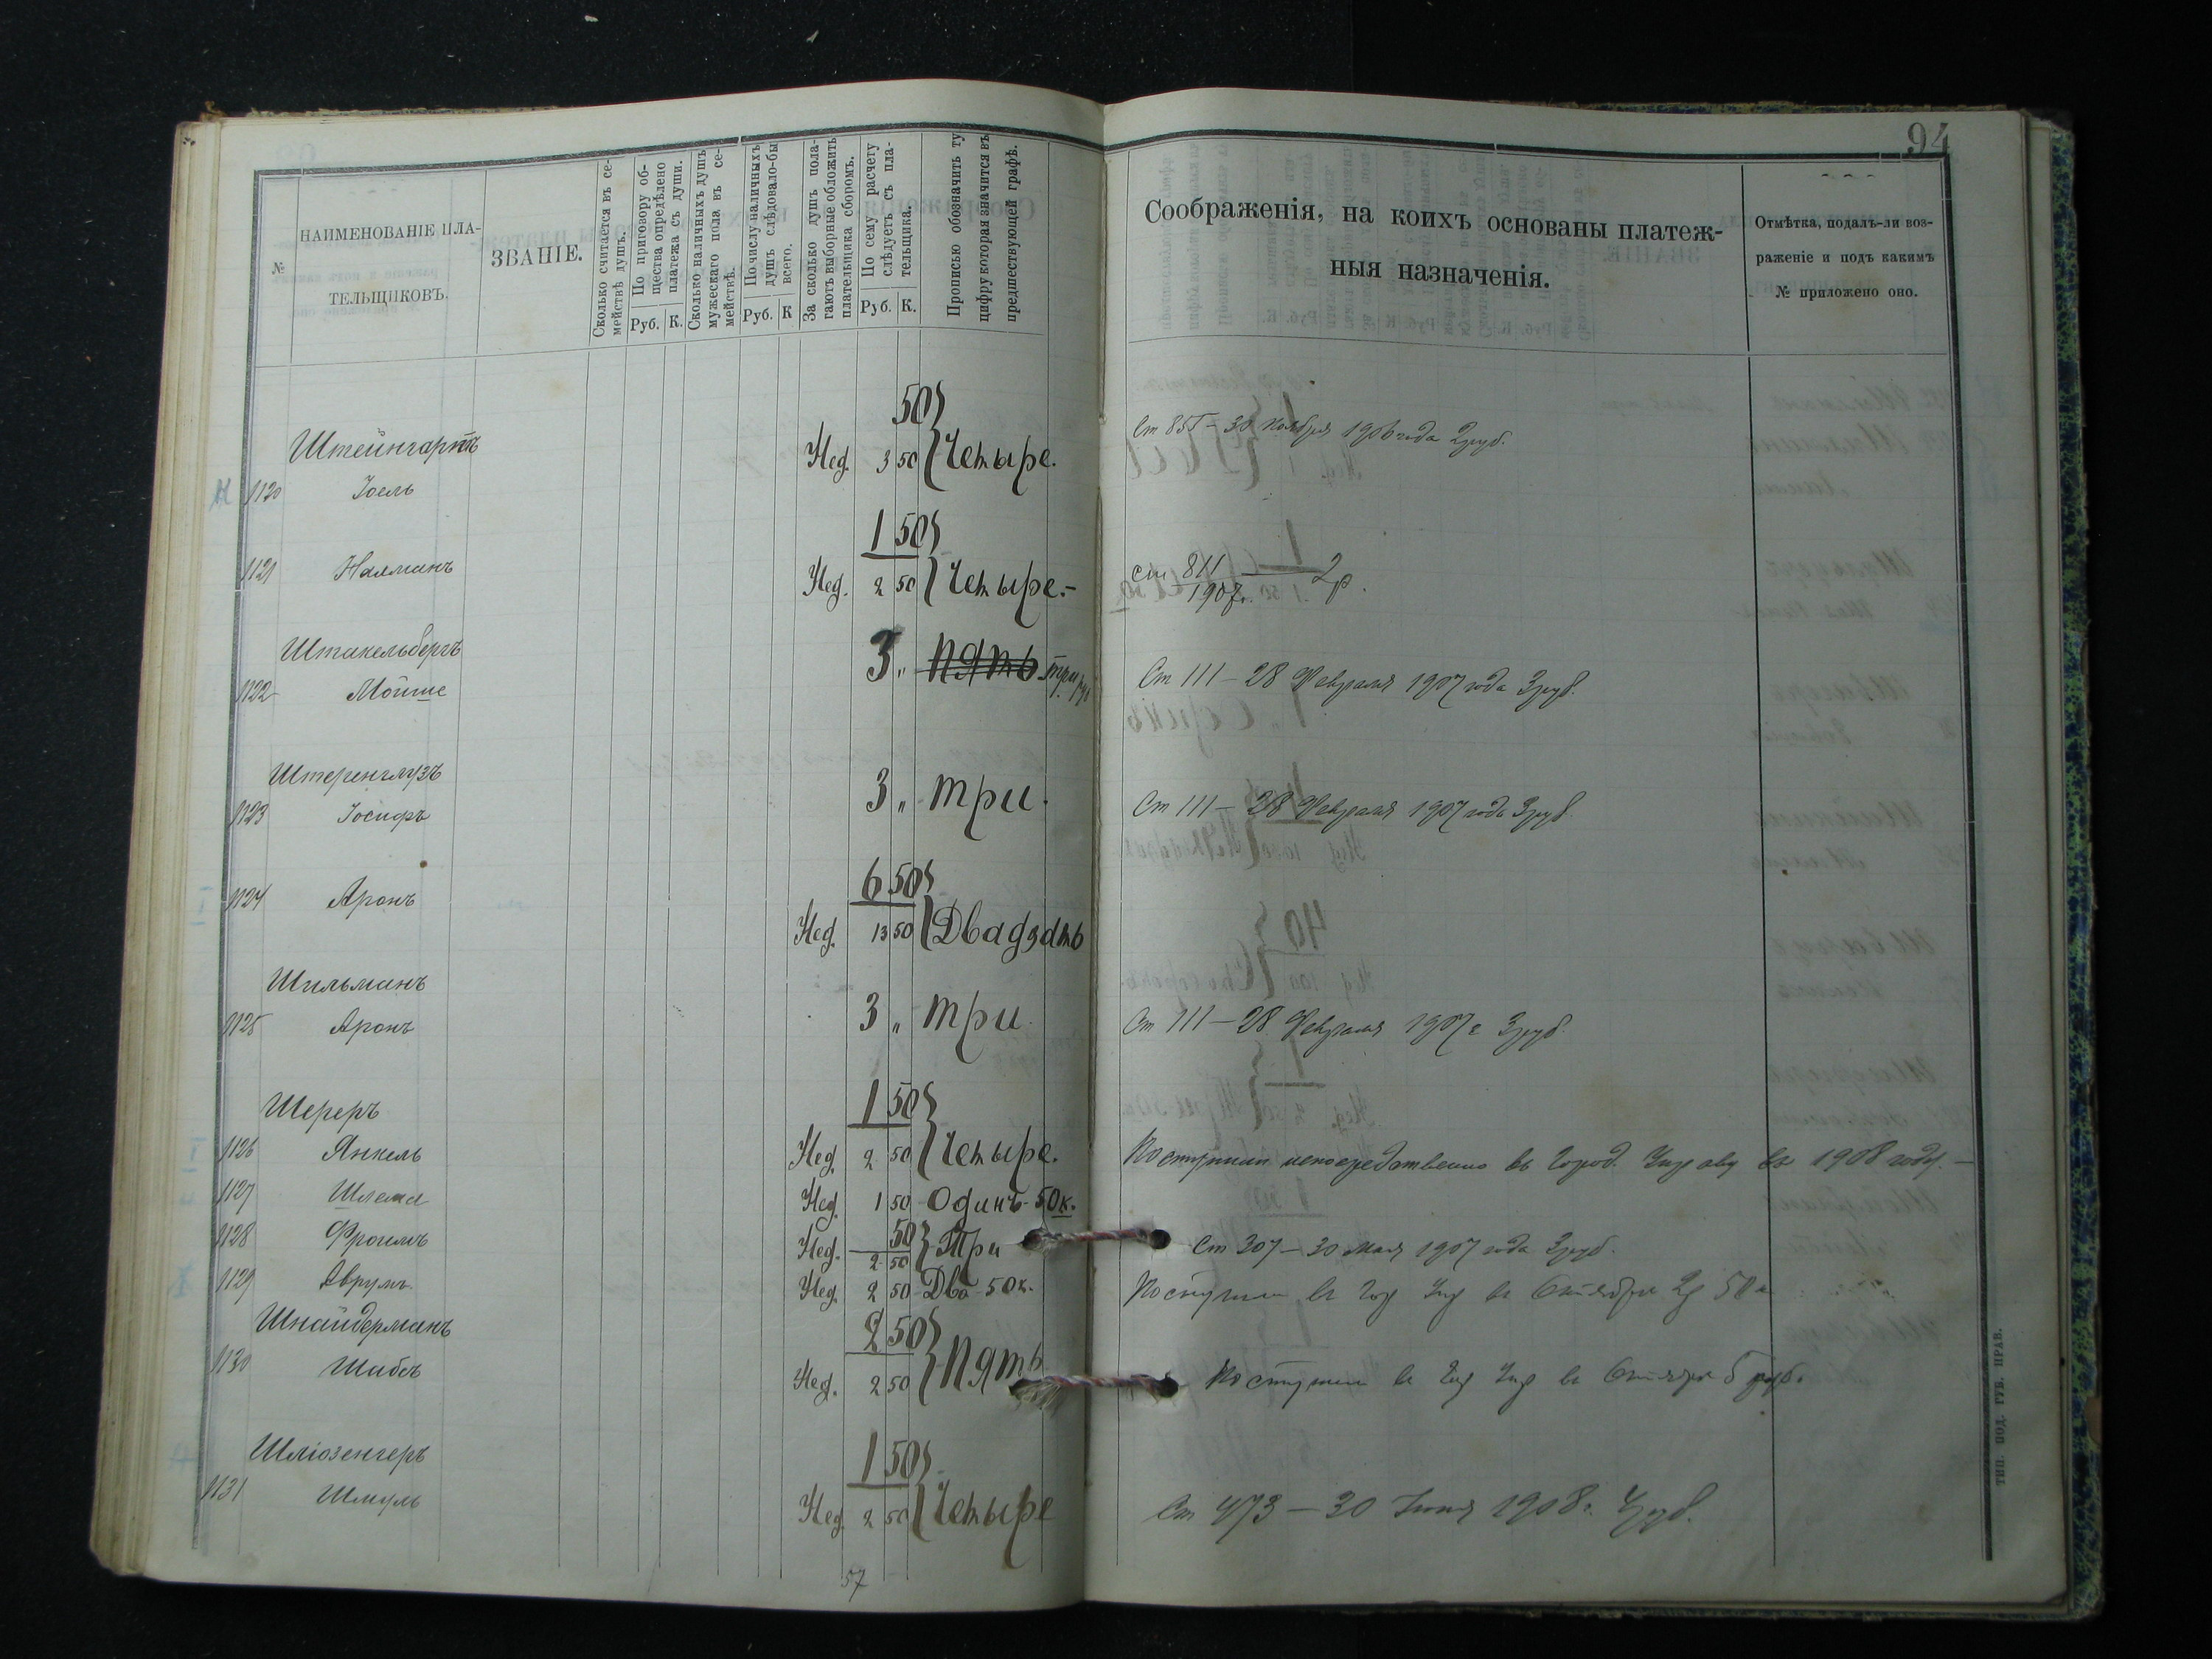 94
№
НАИМЕНОВАНІЕ ПЛА-
ТЕЛЬЩИКОВЪ.
ЗВАНІЕ.
Сколько считается въ се-
мействѣ душъ.
По приговору об-
щества опредѣлено
платежа съ души.
Руб. К.
Сколько наличныхъ душъ
мужескаго пола въ се-
мействѣ.
По числу наличныхъ
душъ слѣдовало-бы
всего.
Руб. К
За сколько душъ пола-
гаютъ выборные обложить
плательщика сборомъ.
По сему расчету
слѣдуетъ съ пла-
тельщика.
Руб. К.
Прописью обозначить ту
цифру которая значится въ
предшествующей графѣ.
Соображенія, на коихъ основаны платеж-
ныя назначенія.
Отмѣтка, подалъ-ли воз-
раженіе и подъ какимъ
№ приложено оно.
50
Штейнгартъ Нед. 3 50 Четыре. Ст 855 – 30 Ноября 1906 года 2 руб.
1120 Іоель
1 50
1121 Налманъ Нед. 2 50 Четыре.- ст 811 2 р.
1907 г.
Штакельбергъ 3 „ Пять три руб
1122 Мойше Ст 111 – 28 Февраля 1907 года 3 руб.
Штеренглузъ 3 „ три.
1123 Іосифъ Ст 111 – 28 Февраля 1907 года 3 руб
6 50
1124 Аронъ
Нед. 13 50 Двадзать
Шильманъ 3 „ три.
1125 Аронъ Ст 111 – 28 Февраля 1907 г 3 руб.
Шереръ 1 50
1126 Янкель Нед. 2 50 Четыре. Поступили непосредственно въ Город. Управу въ 1908 году. –
1127 Шлема Нед. 1 50 Одинъ 50 к.
50
1128 Фроимъ Нед. 2 50 Три Ст 307 – 30 Мая 1907 года 3 руб.
1129 Аврумъ Нед. 2 50 Два 50 к. Поступили в Гор Упр в Октябре 2 р 50 к
Шнайдерманъ 2 50
1130 Шабсъ Нед. 2 50 Пять Поступили в Гор Упр в Октябре 5 руб.
Шлюзенгеръ 1 50
1131 Шмуль Нед. 2 50 Четыре Ст 473 – 30 Іюня 1908 г. 4 руб.
57
ТИП. ПОД. ГУБ. ПРАВ.